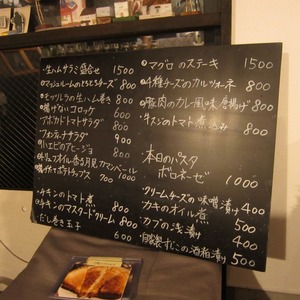 ・生ハムサラミ盛合せ 1500
・マッシュルームのとろとろチーズ 800
・モッツァレラの生ハム巻き 800
・揚げないコロッケ 600
アボカドトマトサラダ 800
フォカッチャサラダ 900
・海老のアヒージョ 800
トリュフオイル香る月見カマンベール 800
ポテトチップス 700 1000
・チキンのトマト煮 800
・チキンのマスタードクリーム 800
だし巻き玉子 600
・マグロのステーキ 1500
・4種チーズのカルツォーネ 800
・豚肉のカレー風味唐揚げ 800
・牛スジのトマト煮込み 800
本日のパスタ
ボロネーゼ 1000
クリームチーズの味噌漬け 400
カキのオイル煮 500
カブの浅漬け 400
・自家製すじこの酒粕漬け 500